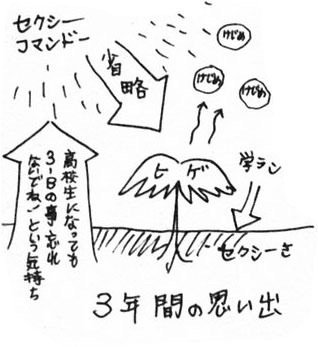 セクシー
コマンドー
省略
けじめ
けじめ
けじめ
ヒゲ
学ラン
高校生になっても
3-Bの事、忘れ
ないでね!という気持ち
セクシーさ
3年間の思い出